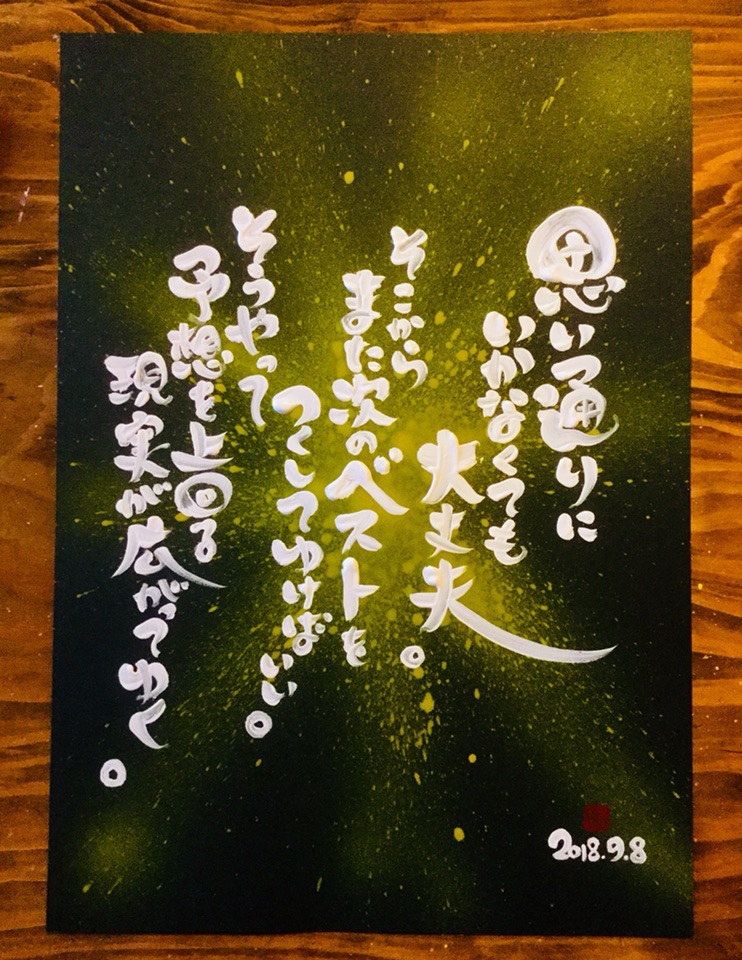 思い通りに
いかなくても
大丈夫。
そこから
また次のベストを
つくしてゆけばいい。
そうやって
予想を上回る
現実が広がってゆく。
2018.9.8